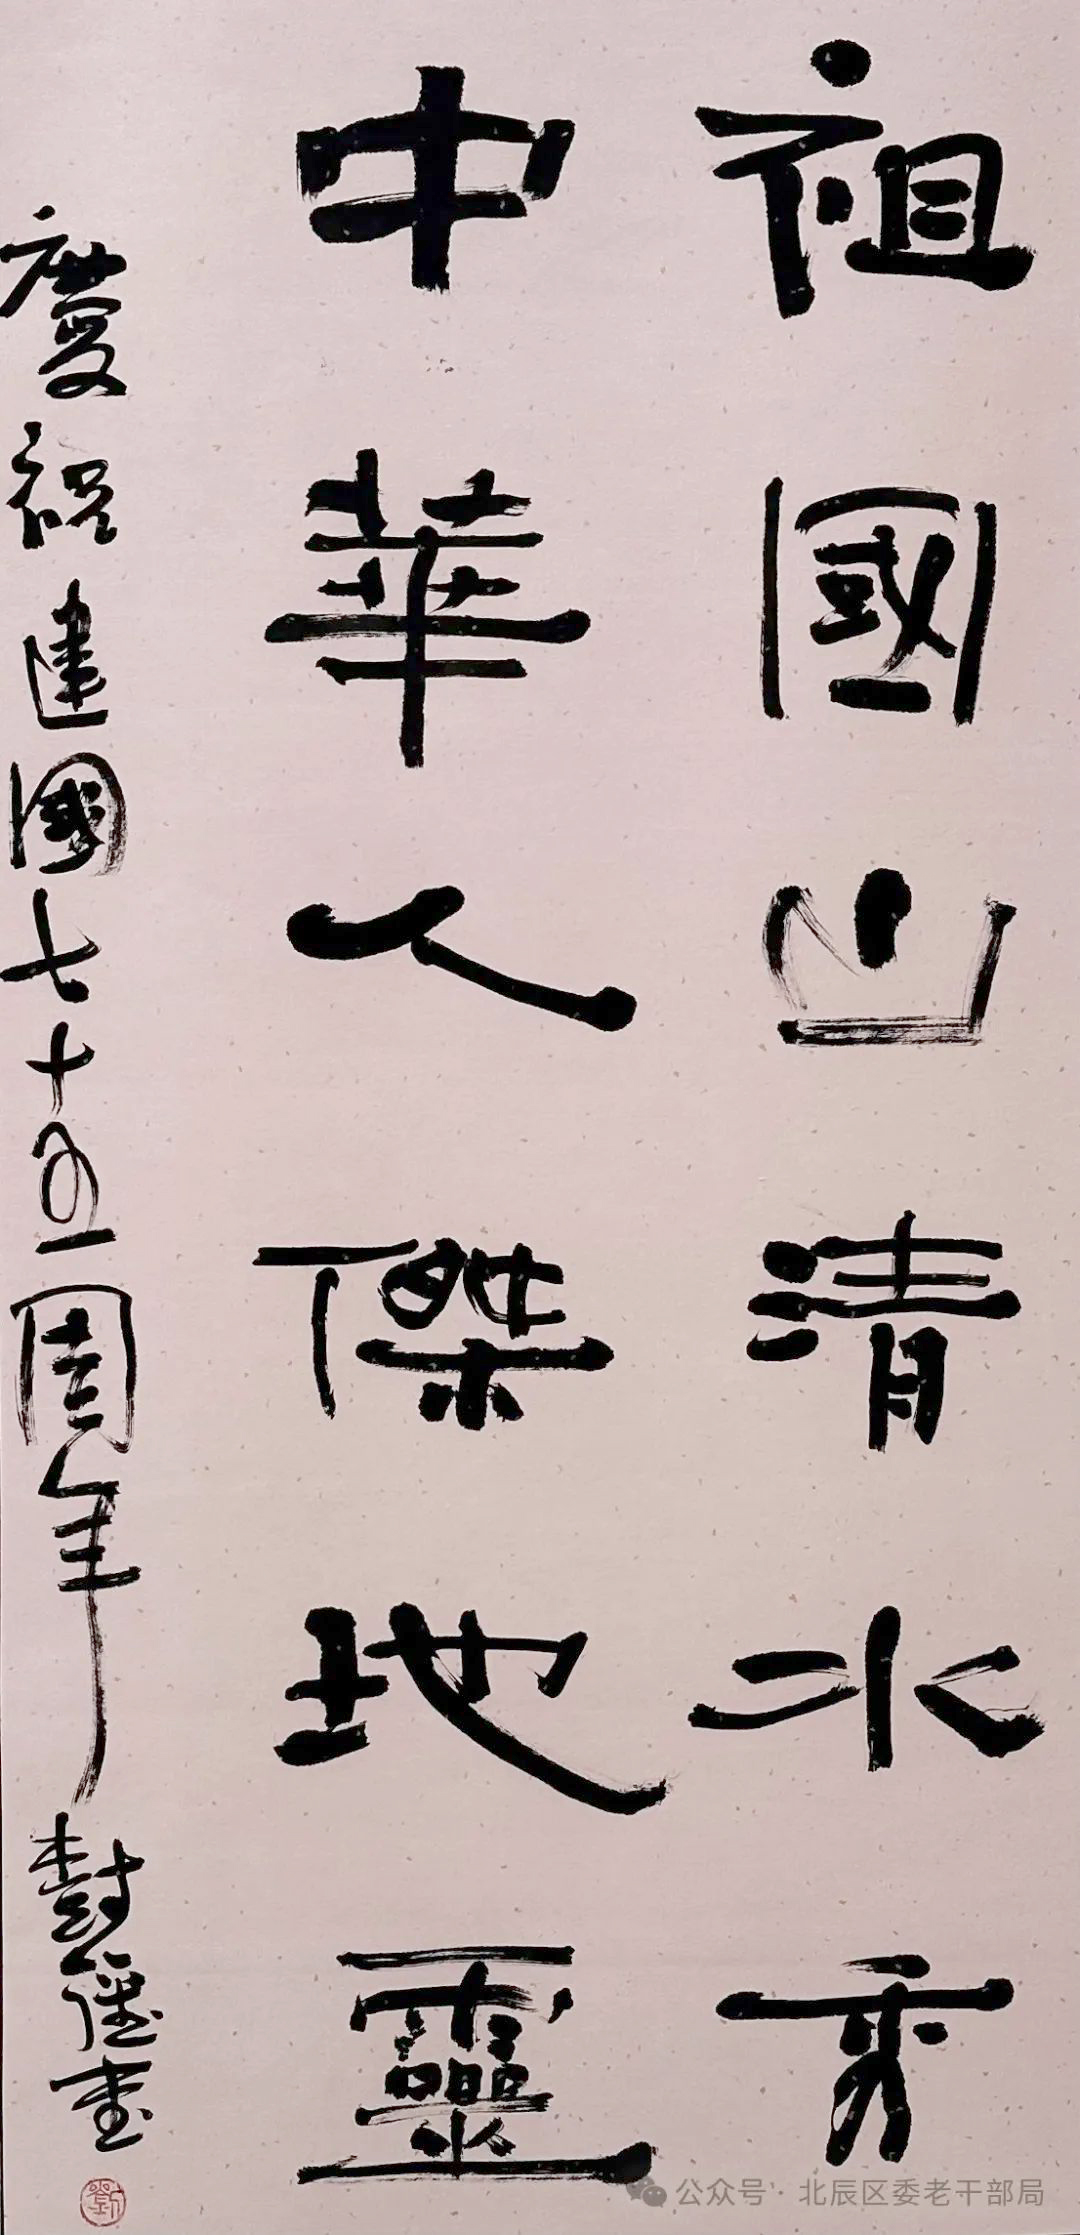 祖國山清水秀
中華人傑地靈
慶祝建國七十五周年 樹僅書
劉
公众号 · 北辰区委老干部局